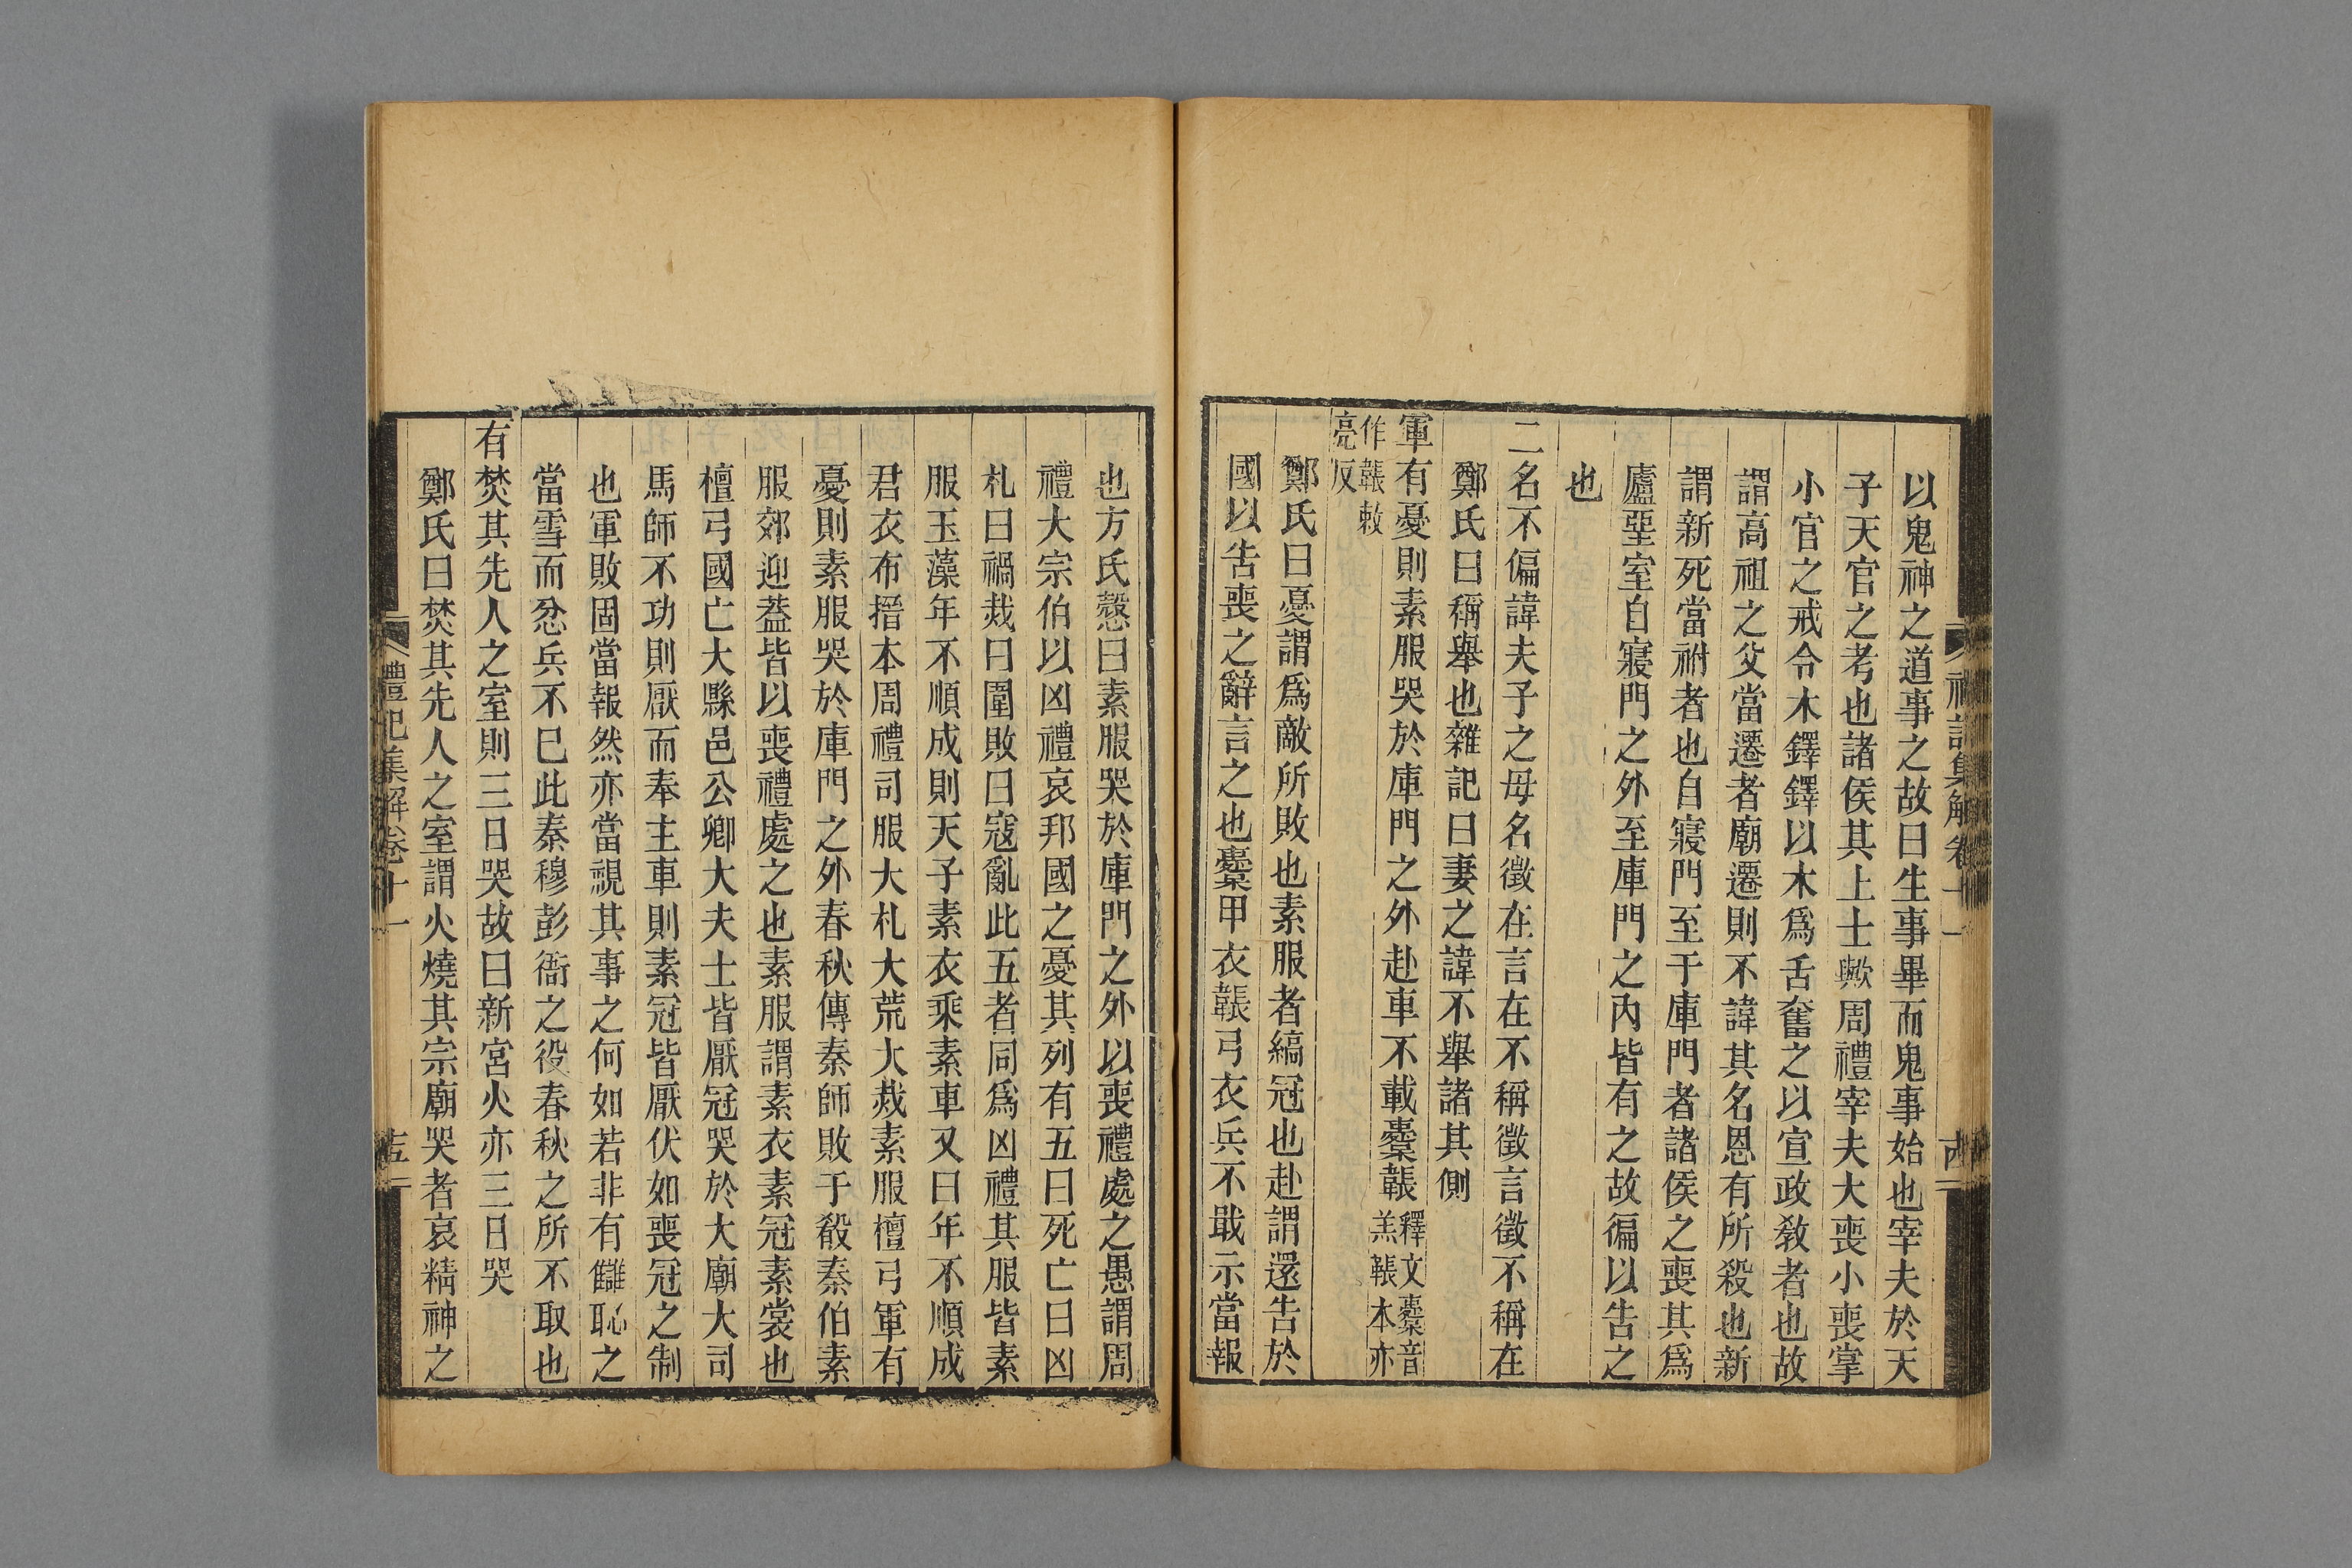 以鬼神之道事之故曰生事畢而鬼事始也宰夫於天
子天官之考也諸侯其上士歟周禮宰夫大喪小喪掌
小官之戒令木鐸鐸以木爲舌奮之以宣政敎者也故
謂高祖之父當遷者廟遷則不諱其名恩有所殺也新
謂新死當祔者也自寢門至于庫門者諸侯之喪其爲
廬堊室自寢門之外至庫門之內皆有之故徧以告之
也
二名不偏諱夫子之母名徵在言在不稱徵言徵不稱在
鄭氏曰稱舉也雜記曰妻之諱不舉諸其側
軍有憂則素服哭於庫門之外赴車不載櫜韔釋文櫜音羔韔本亦
作韔敕亮反
鄭氏曰憂謂爲敵所敗也素服者縞冠也赴謂還告於
國以告喪之辭言之也櫜甲衣韔弓衣兵不戢示當報
禮記集解卷十一
十四
也方氏慤曰素服哭於庫門之外以喪禮處之愚謂周
禮大宗伯以凶禮哀邦國之憂其列有五曰死亡曰凶
札曰禍烖曰圍敗曰寇亂此五者同爲凶禮其服皆素
服玉藻年不順成則天子素衣乘素車又曰年不順成
君衣布搢本周禮司服大札大荒大烖素服檀弓軍有
憂則素服哭於庫門之外春秋傳秦師敗于殽秦伯素
服郊迎葢皆以喪禮處之也素服謂素衣素冠素裳也
檀弓國亡大縣邑公卿大夫士皆厭冠哭於大廟大司
馬師不功則厭而奉主車則素冠皆厭伏如喪冠之制
也軍敗固當報然亦當視其事之何如若非有讎恥之
當雪而忿兵不已此秦穆彭衙之役春秋之所不取也
有焚其先人之室則三日哭故曰新宮火亦三日哭
鄭氏曰焚其先人之室謂火燒其宗廟哭者哀精神之
禮記集解卷十一
十五